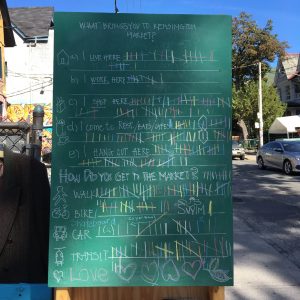 WHAT BRINGS YOU TO KENSINGTON
MARKET?
a) I LIVE HERE
b) I WORK HERE
c) I SHOP HERE
d) I COME TO REST/EAT/
e) I HANG OUT HERE
HOW DO YOU GET TO THE MARKET?
WALK
BIKE/ SWIM
Skateboard
CAR
TRANSIT
Love